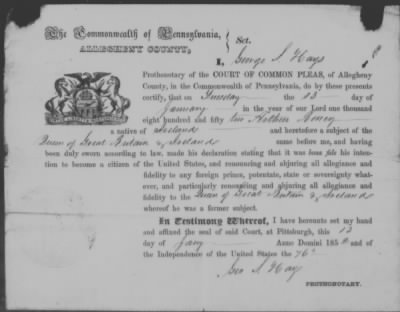 The Commonwealth of Pennsylvania,
ALLEGHENY COUNTY,
Sct.
I, George S. Hays
Prothonotary of the COURT OF COMMON PLEAS, of Allegheny
County, in the Commonwealth of Pennsylvania, do by these presents
certify, that on Tuesday the 13 day of
January in the year of our Lord one thousand
eight hundred and fifty two
a native of Ireland and heretofore a subject of the
Queen of Great Britain & Ireland same before me, and having
been duly sworn according to law, made his declaration stating that it was bona fide his inten-
tion to become a citizen of the United States, and renouncing and abjuring all allegiance and
fidelity to any foreign prince, potentate, state or sovereignty whatev-
er, and particularly renouncing and abjuring all allegiance and
fidelity to the Queen of Great Britain & Ireland
whereof he was a former subject.
In Testimony Whereof, I have hereunto set my hand
and affixed the seal of said Court, at Pittsburgh, this 13
day of Jany Anno Domini 185 and of
the Independence of the United States the 76th
Geo S. Hays
PROTHONOTARY.